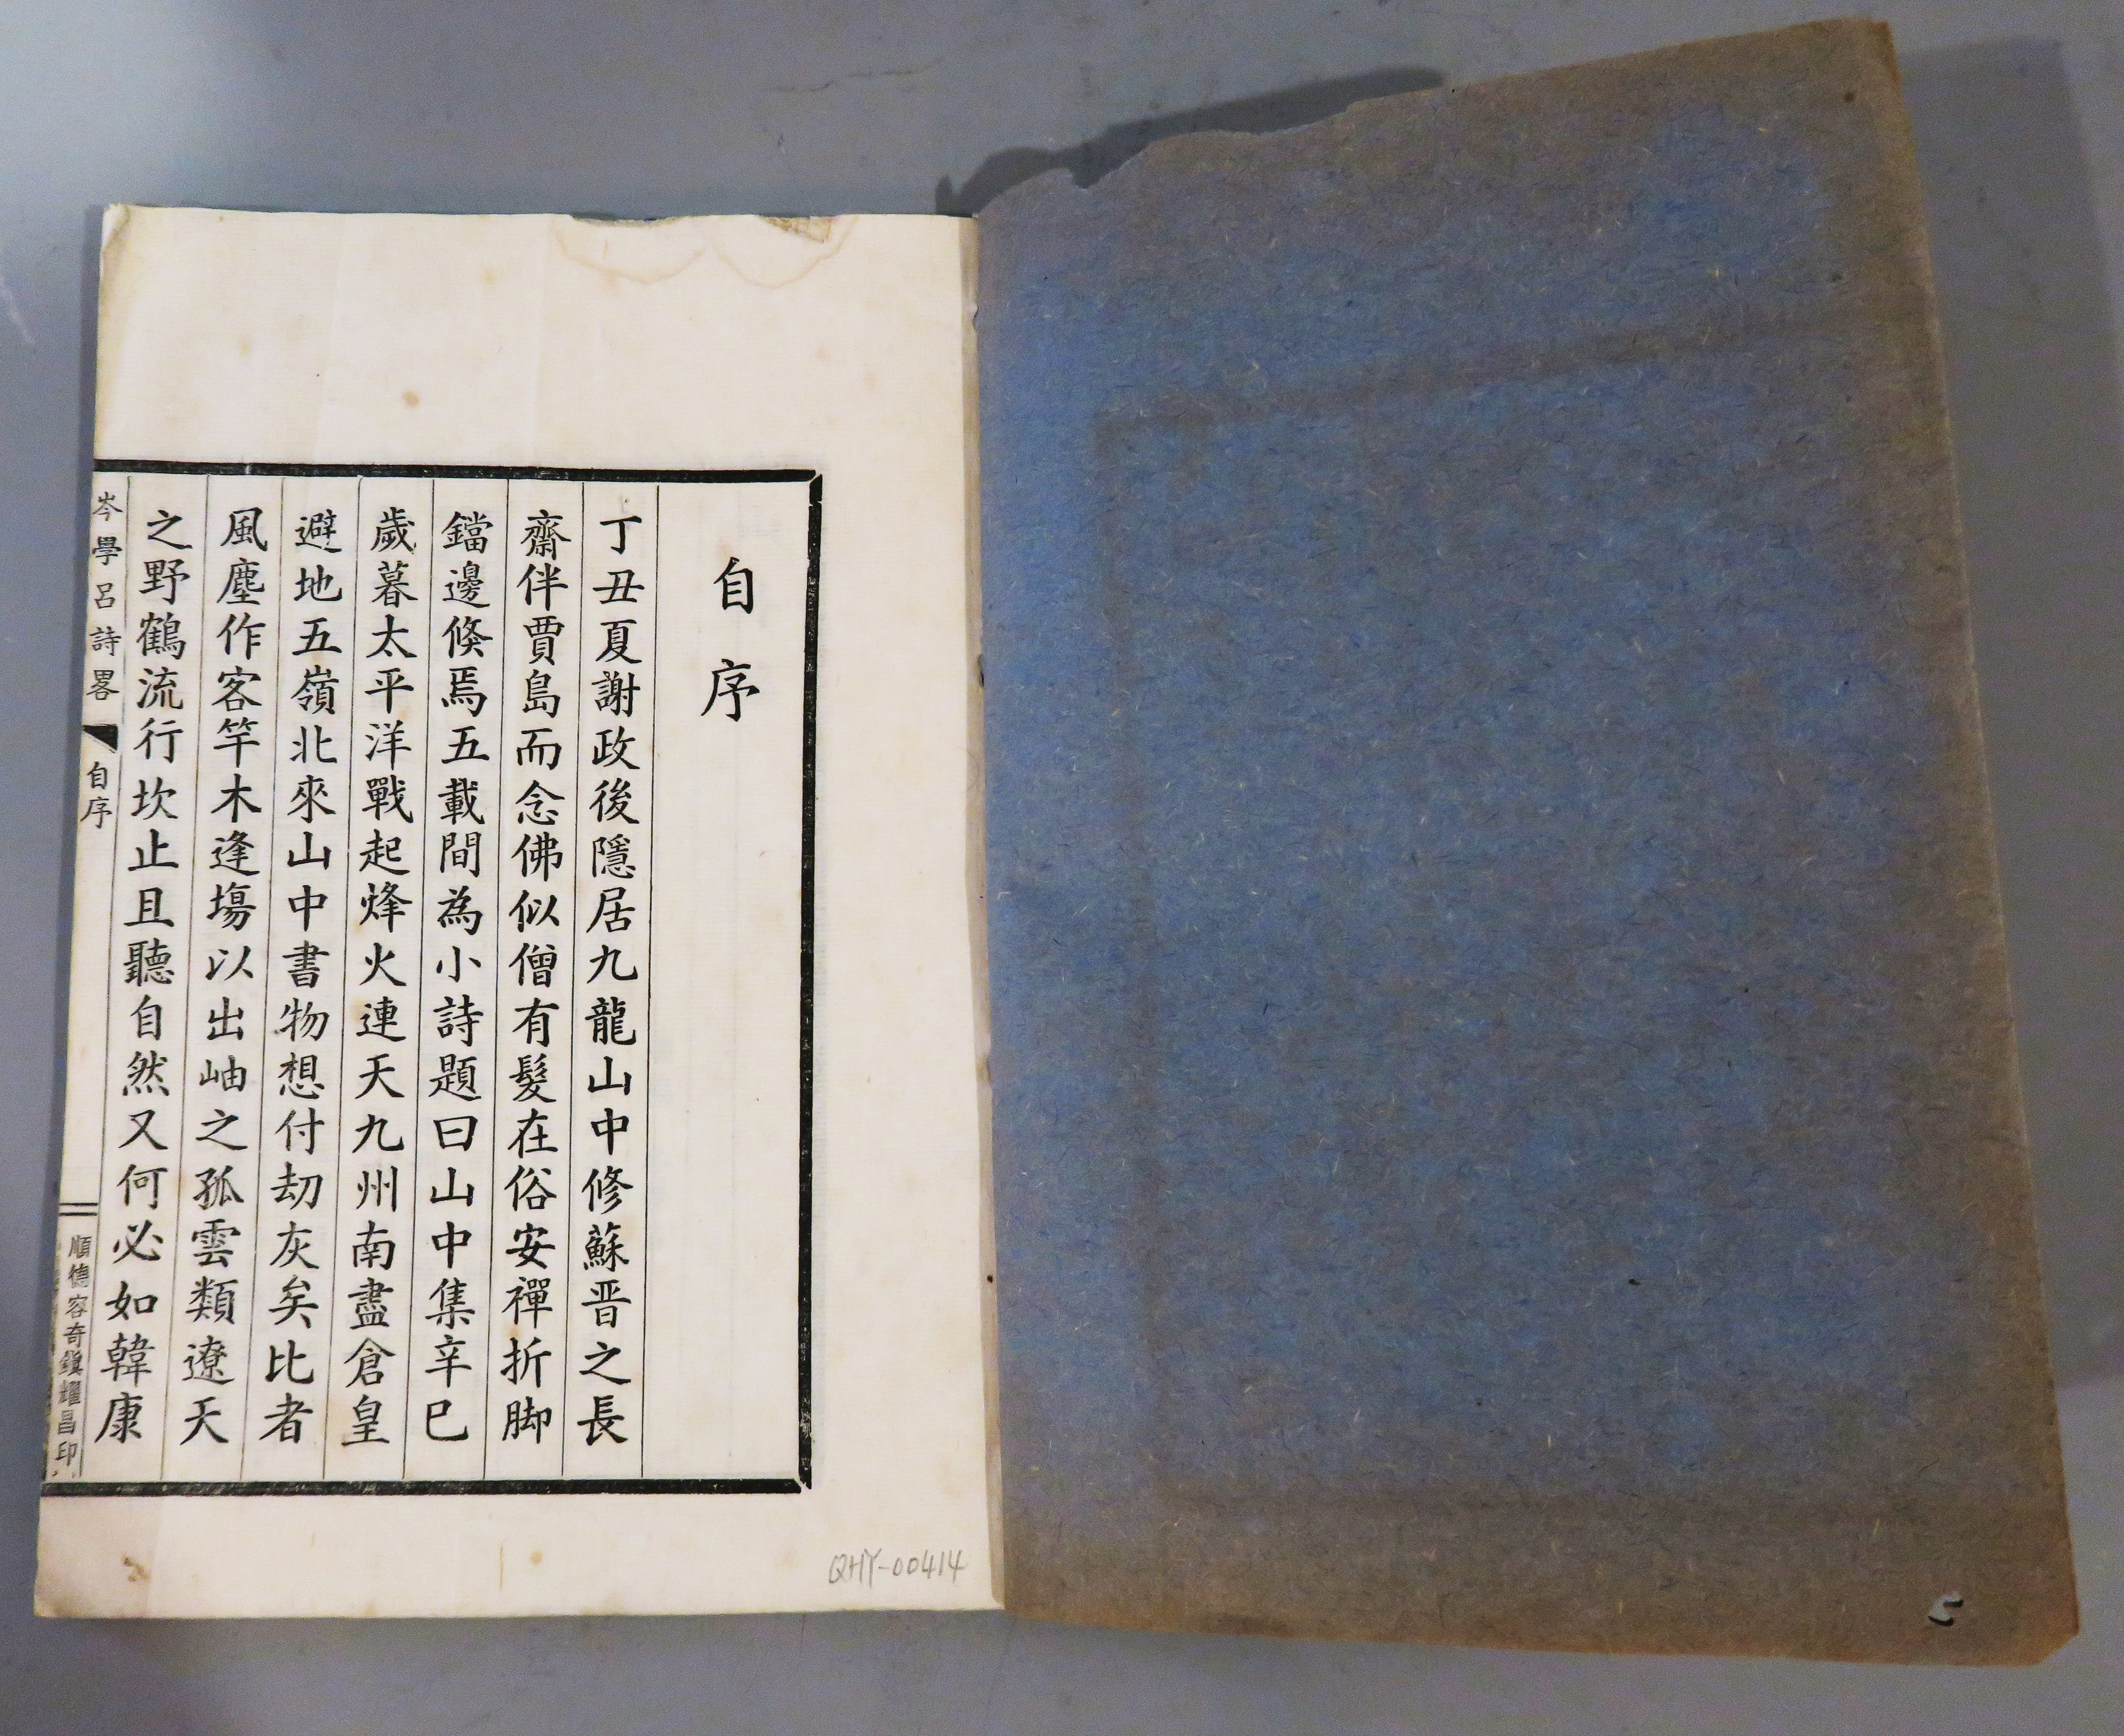 自序
丁丑夏謝政後隱居九龍山中修蘇晋之長
齋伴賈島而念佛似僧有髮在俗安禪折脚
鐺邊倏焉五載間為小詩題曰山中集辛巳
歲暮太平洋戰起烽火連天九州南盡倉皇
避地五嶺北來山中書物想付刧灰矣比者
風塵作客竿木逢塲以出岫之孤雲類遼天
之野鶴流行坎止且聽自然又何必如韓康
岑學呂詩畧
自序
順德容奇鎭耀昌印
QHY-00414